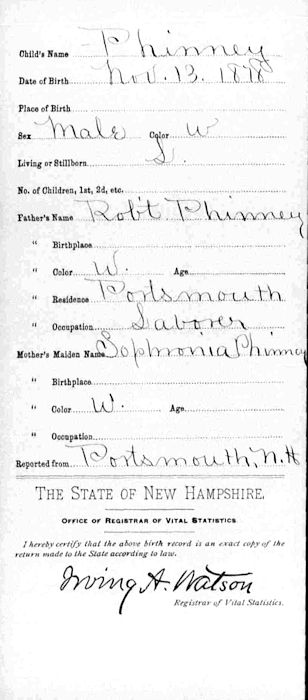 Child's Name Phinney
Date of Birth Nov. 13. 1878
Place of Birth
Sex Male Color W
Living or Stillborn L.
No. of Children, 1st, 2d, etc.
Father's Name Rob't Phinney
" Birthplace
" Color W. Age
" Residence Portsmouth
" Occupation Laborer
Mother's Maiden Name Sophronia Phinney
" Birthplace
" Color W. Age
" Occupation
Reported from Portsmouth, N.H
THE STATE OF NEW HAMPSHIRE.
OFFICE OF REGISTRAR OF VITAL STATISTICS
I hereby certify that the above birth record is an exact copy of the
return made to the State according to law.
Irving A. Watson
Registrar of Vital Statistics.